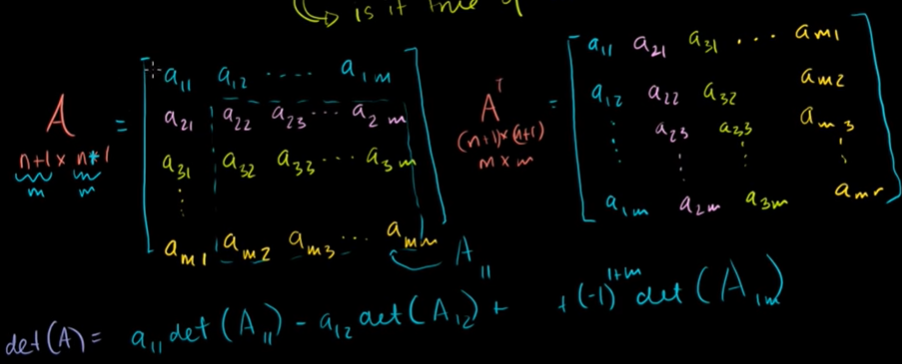 is it true
A = [ a₁₁ a₁₂ ---- a₁m
a₂₁ a₂₂ a₂₃ ... a₂m
a₃₁ a₃₂ a₃₃ ... a₃m
⋮
am₁ am₂ am₃ ... amm ]
n+1 × n+1
m m
A₁₁
Aᵀ = [ a₁₁ a₂₁ a₃₁ ... am₁
a₁₂ a₂₂ a₃₂ am₂
⋮ a₂₃ a₃₃ am₃
⋮ ⋮ ⋮
a₁m a₂m a₃m amr ]
(n+1)×(n+1)
m × m
det(A) = a₁₁ det(A₁₁) - a₁₂ det(A₁₂) + +(-1)¹⁺ᵐ det(A₁m)